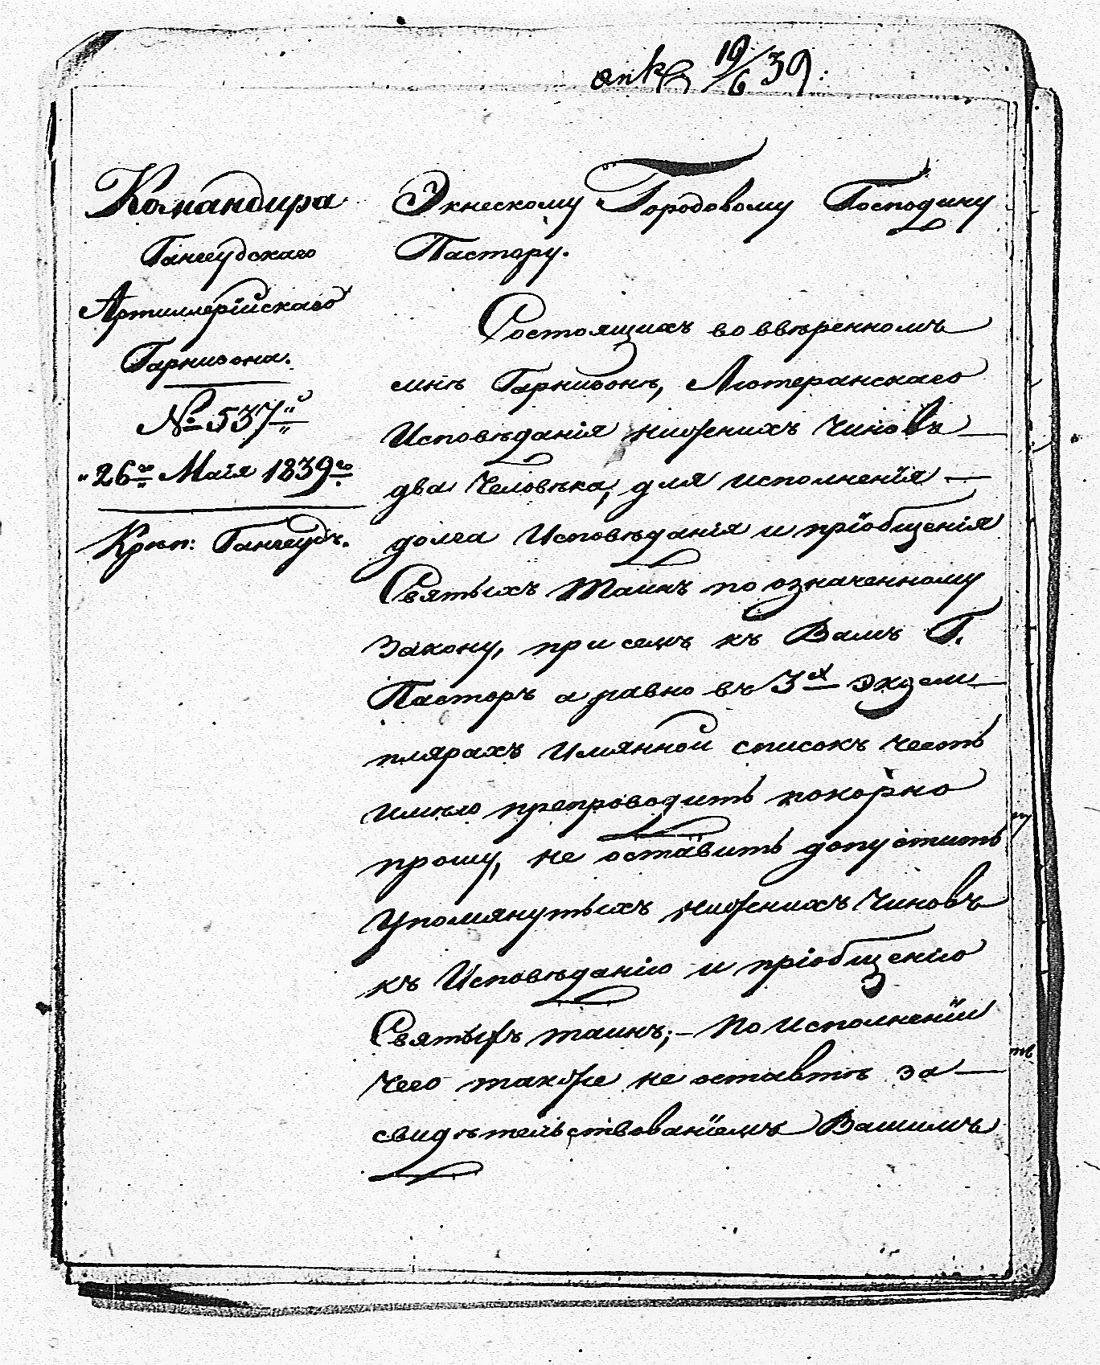 ank 10/6 39.
Командира
Гангеудскаго
Артиллерійскаго
Гарнизона.
№ 537й
"26го Маія 1839го
Крѣп: Гангеудъ.
Экнескому Городовому Господину
Пастору.
Состоящихъ во ввѣренномъ
мнѣ Гарнизонѣ, Лютеранскаго
Исповѣданія нижнихъ чиновъ
два Человѣка, для исполненія
долга Исповѣданія и пріобщенія
Святыхъ Таинъ по означенному
Закону, при семъ къ Вамъ Г.
Пасторъ а равно въ 3х экзем
плярахъ имянной списокъ честь
имѣю препроводить покорно
прошу, не оставить допустить
упомянутыхъ нижнихъ чиновъ
къ Исповѣданію и пріобщенію
Святыхъ таинъ; - По исполненіи
чего также не оставтѣ за
свидѣтельствованіемъ Вашимъ